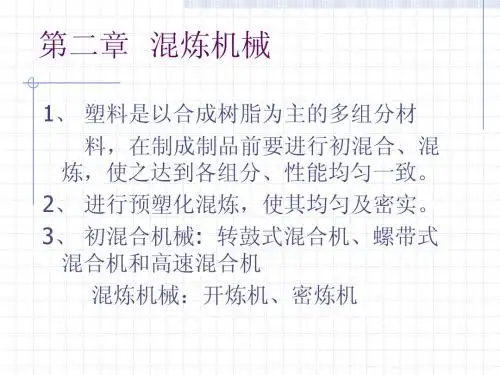 第二章 混炼机械
1、 塑料是以合成树脂为主的多组分材
料，在制成制品前要进行初混合、混
炼，使之达到各组分、性能均匀一致。
2、 进行预塑化混炼，使其均匀及密实。
3、 初混合机械：转鼓式混合机、螺带式
混合机和高速混合机
混炼机械：开炼机、密炼机